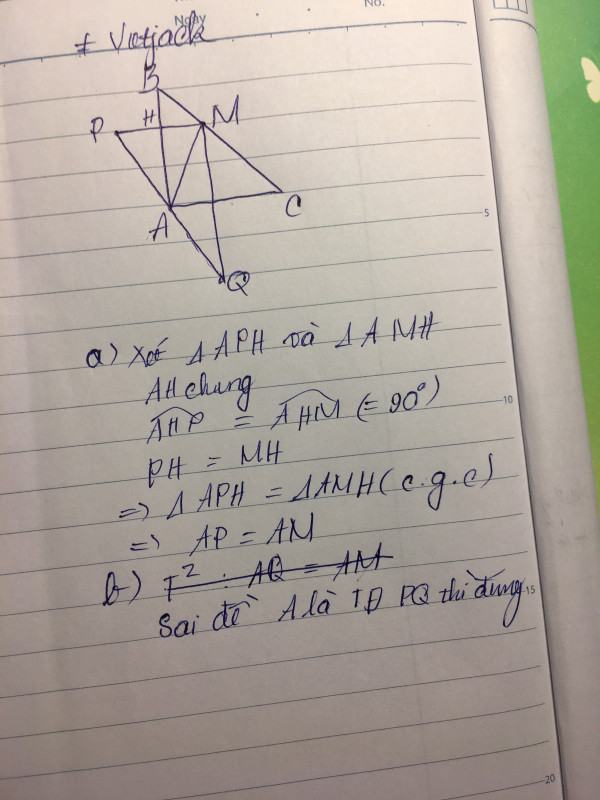 No.
Ngày
# Vietjack
B
P H M
A C
Q
5
a) Xét Δ APH và Δ AMH
AH chung
AHP = AHM (= 90°)
10
PH = MH
=> Δ APH = ΔAMH (c.g.c)
=> AP = AM
b) T² : AQ = AM
Sai đề A là TĐ PQ thì đúng
15
20